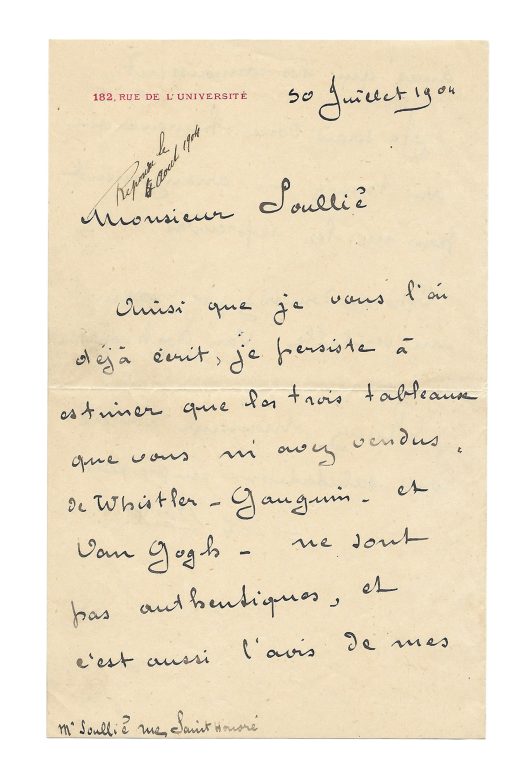 182, RUE DE L'UNIVERSITÉ
30 Juillet 1904
Réponse le
4 Aout 1904
Monsieur Soullié
Ainsi que je vous l'ai
déjà écrit, je persiste à
estimer que les trois tableaux
que vous m'avez vendus,
de Whistler - Gauguin - et
Van Gogh - ne sont
pas authentiques, et
c'est aussi l'avis de mes
Mr Soullié rue Saint Honoré